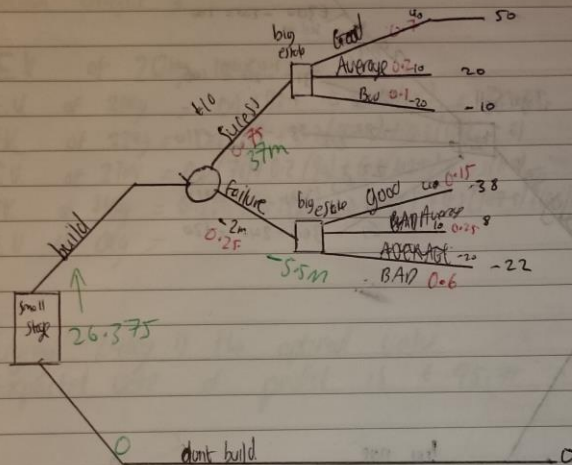 big
estate
Good 0.7 40 50
Average 0.2 10 20
Bad 0.1 -20 -10
+10
Sucess
0.75
37m
failure
-2m
0.25
big estate
good 40 0.15 38
BAD Average 10 0.25 8
AVERAGE -20 -22
BAD 0.6
-5.5m
build
small
stage
26.375
0
dont build 0